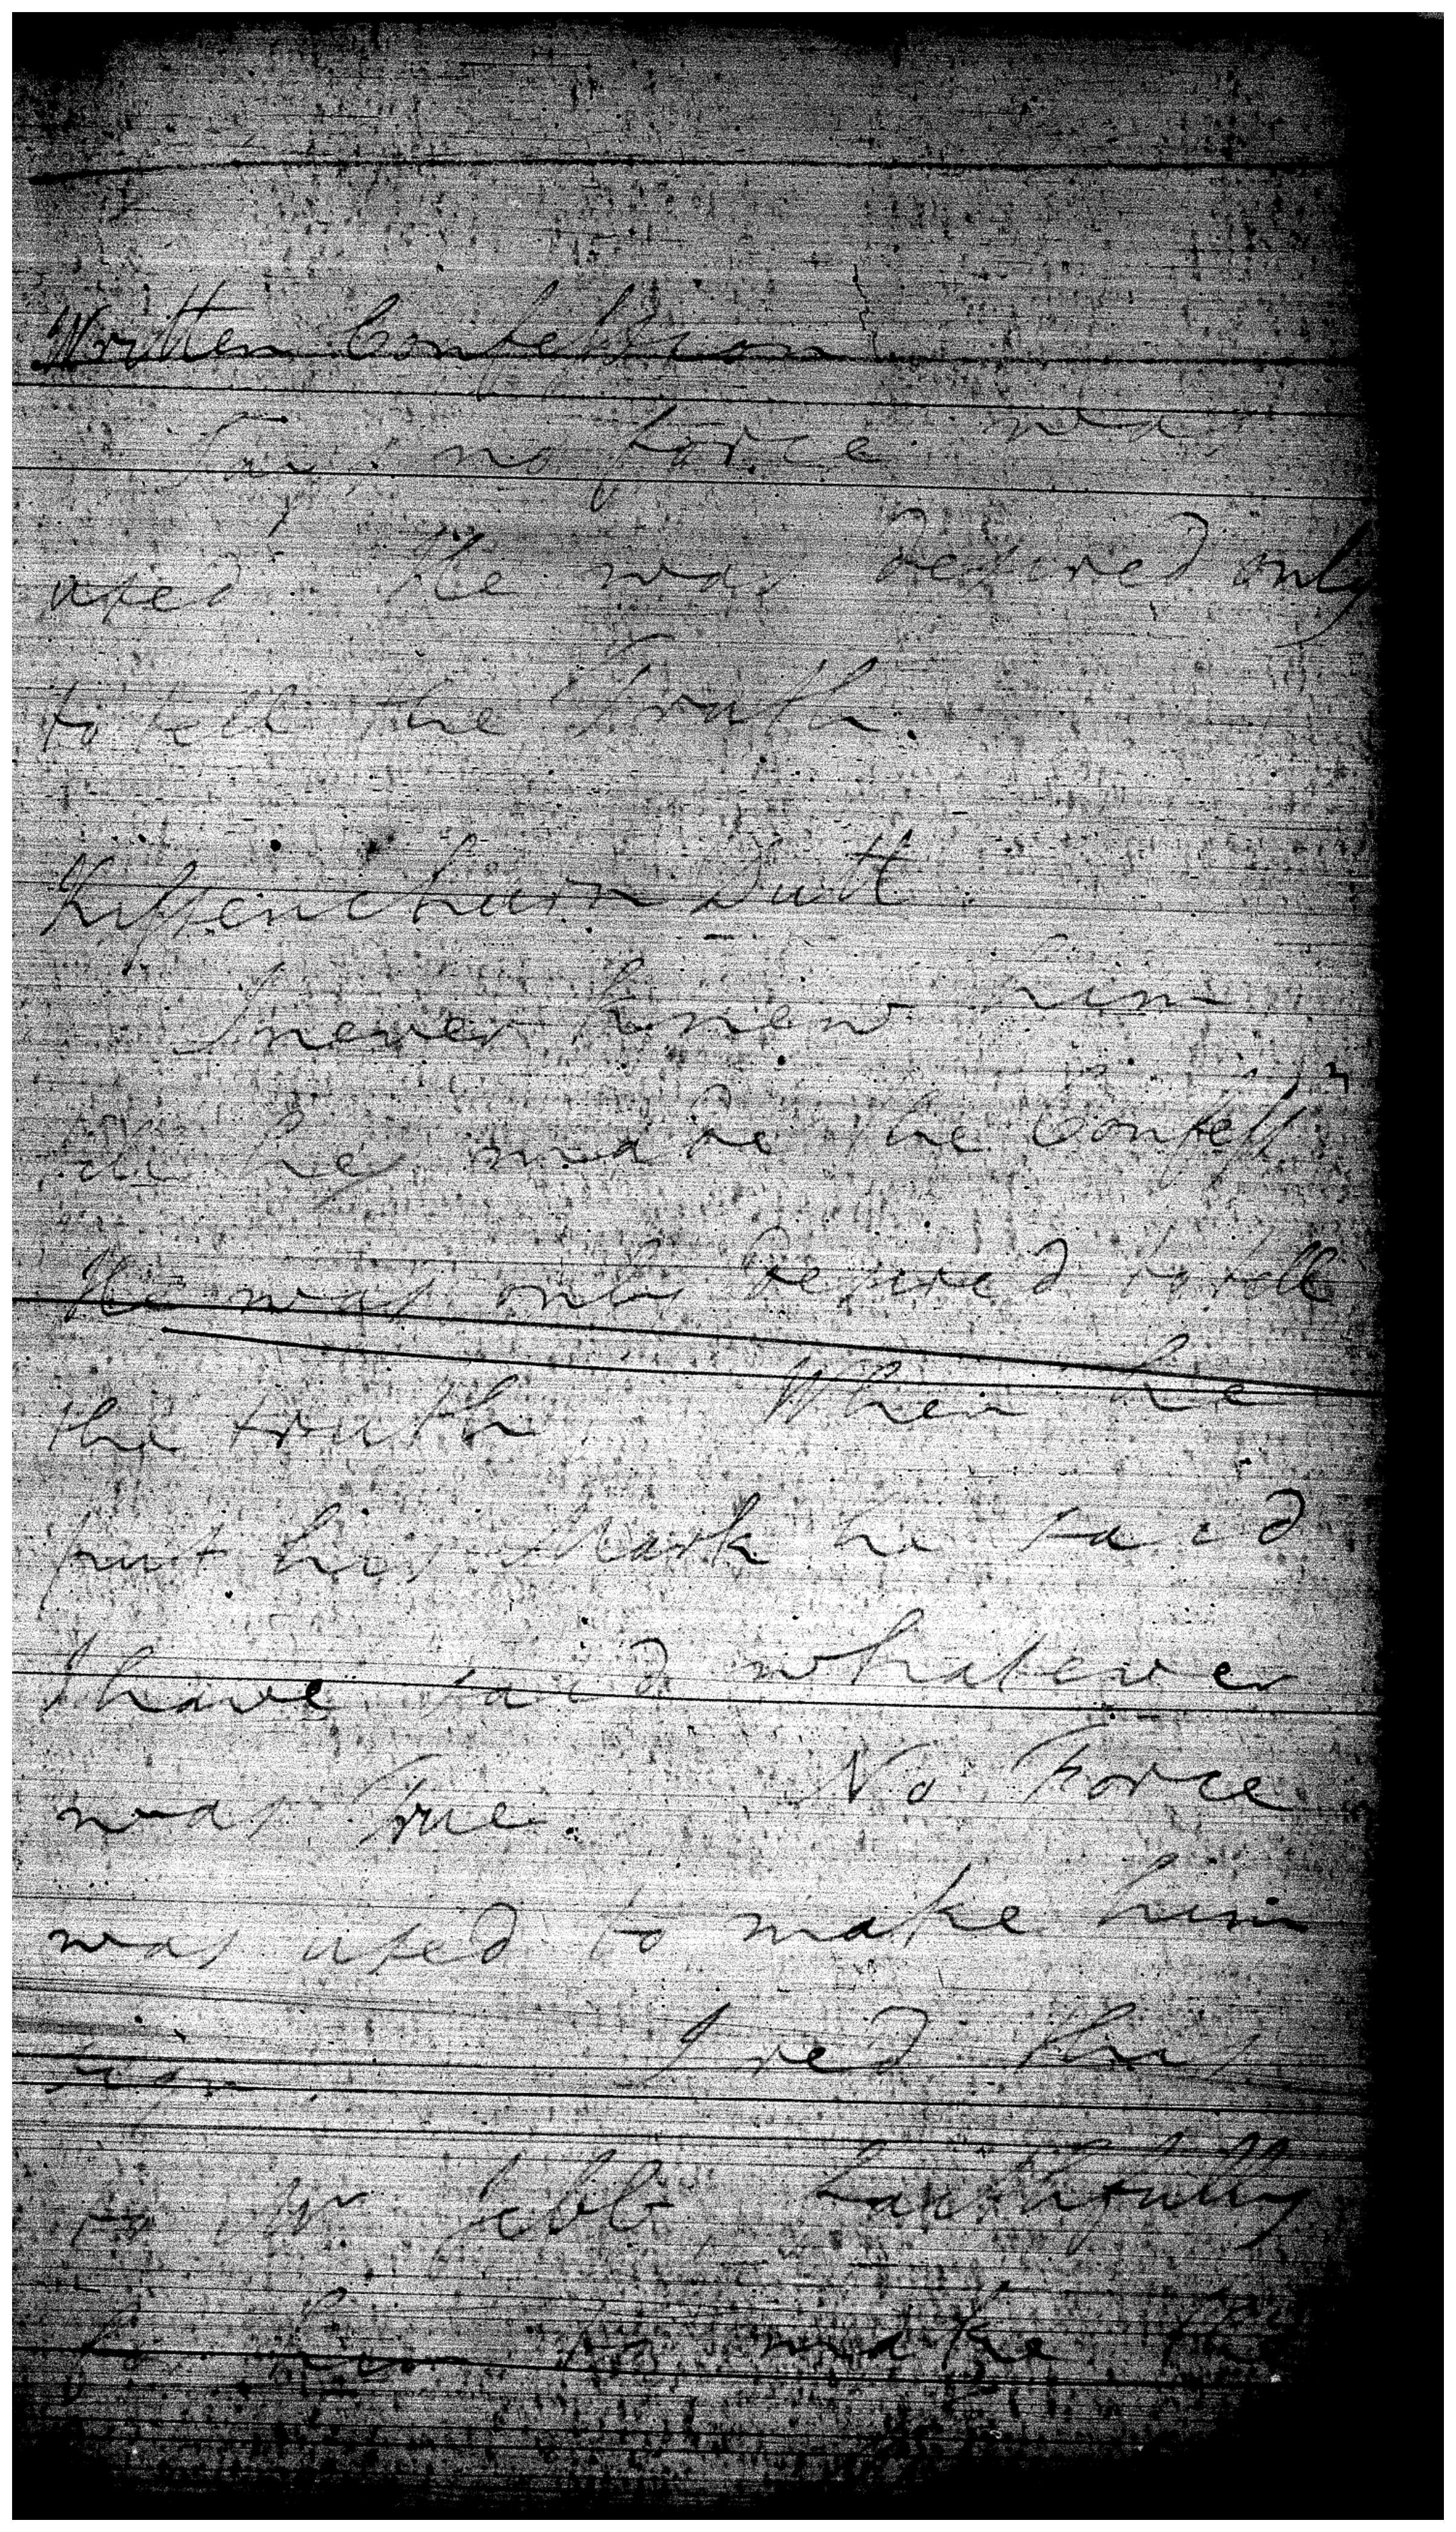 Written Confession
Says no force was
used. He was desired only
to tell the Truth.
Kissenchurn Dutt.
I never knew him
he made the Confess^n
He was only desired to tell
the truth When he
put his Mark he said
I have said whatever
was True. No Force
was used to make him
sign I red this
to Mr faithfully
him to make the